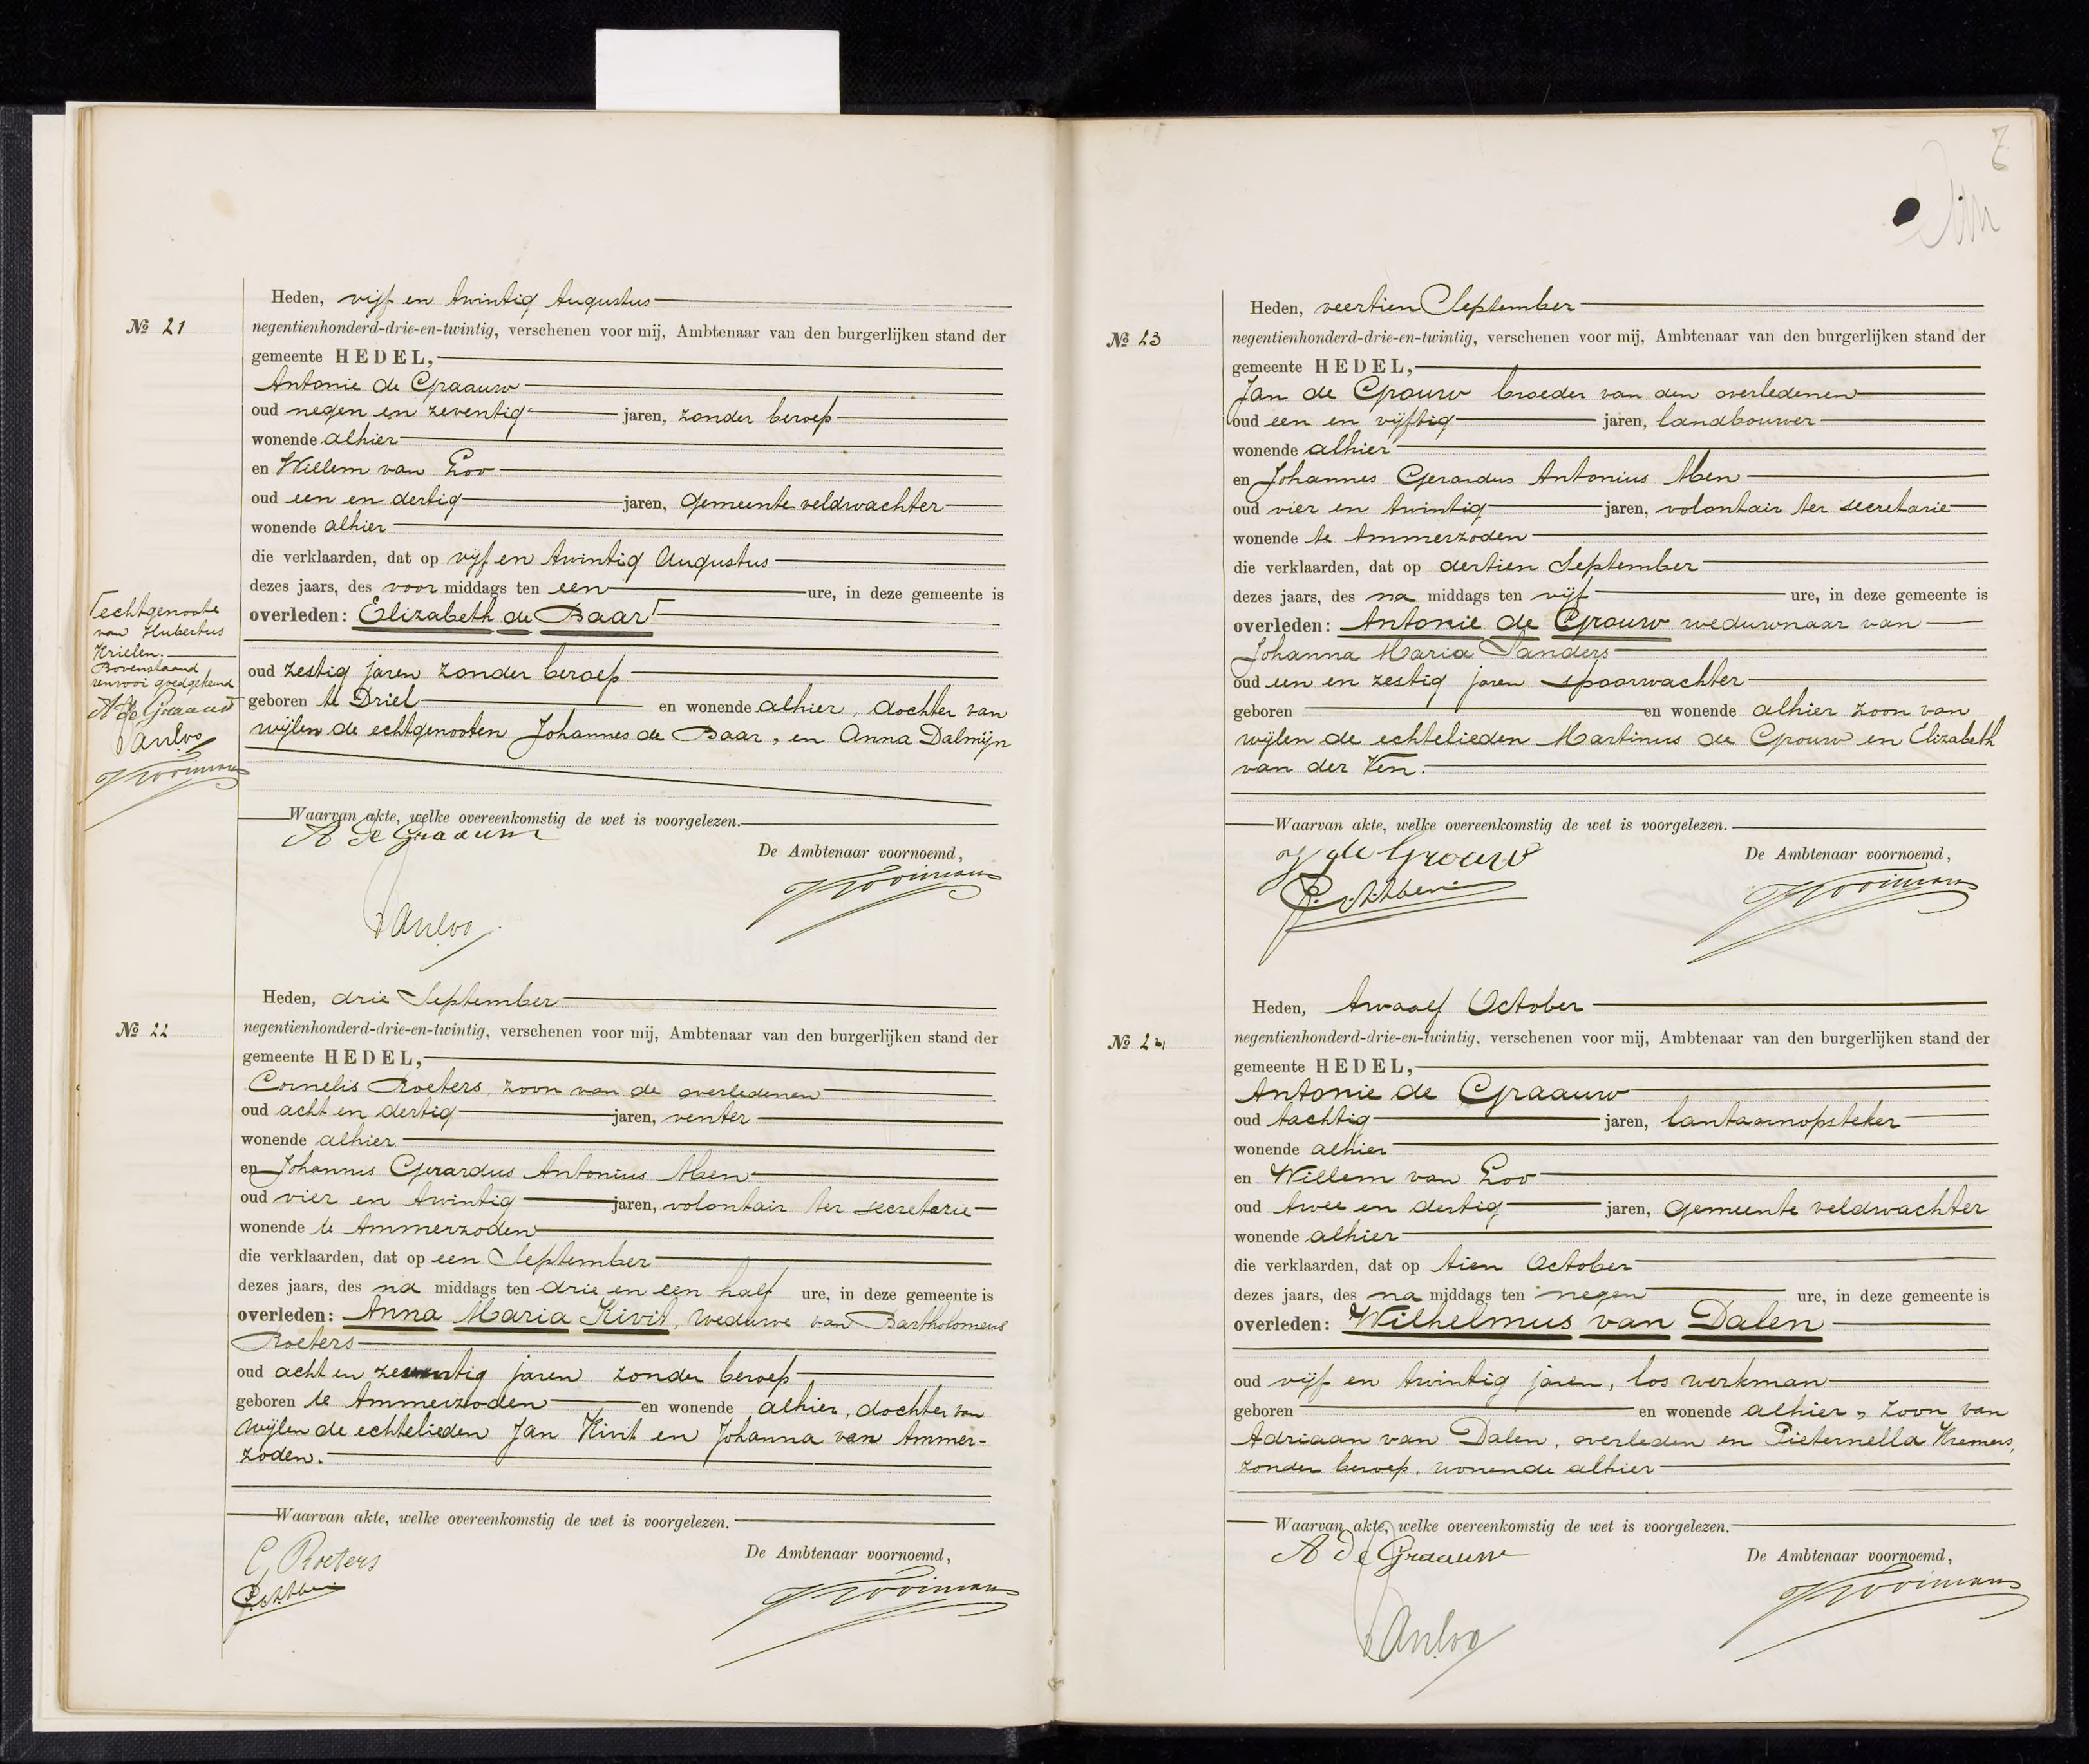 Heden, vijf en twintig Augustus
№ 21
negentienhonderd-drie-en-twintig, verschenen voor mij, Ambtenaar van den burgerlijken stand der
gemeente HEDEL,
Antonie de Graauw
oud negen en zeventig jaren, zonder beroep
wonende alhier
en Willem van Loo
oud een en dertig jaren, gemeente veldwachter
wonende alhier
die verklaarden, dat op vijf en twintig Augustus
dezes jaars, des voor middags ten een ure, in deze gemeente is
overleden: Elizabeth de Baar
oud zestig jaren zonder beroep
geboren te Driel en wonende alhier, dochter van
wijlen de echtgenooten Johannes de Baar, en Anna Dalmijn
echtgenoote
van Hubertus
Krielen.
Bovenstaand
renvooi goedgekeurd
A de Graauw
vanLoo
Kooimans
Waarvan akte, welke overeenkomstig de wet is voorgelezen.
A de Graauw
De Ambtenaar voornoemd,
Kooimans
vanLoo
Heden, drie September
№ 22
negentienhonderd-drie-en-twintig, verschenen voor mij, Ambtenaar van den burgerlijken stand der
gemeente HEDEL,
Cornelis Roeters, zoon van de overledenen
oud acht en dertig jaren, venter
wonende alhier
en Johannis Gerardus Antonius Aben
oud vier en twintig jaren, volontair ter secretarie
wonende te Ammerzoden
die verklaarden, dat op een September
dezes jaars, des na middags ten drie en een half ure, in deze gemeente is
overleden: Anna Maria Kivit, weduwe van Bartholomeus
Roeters
oud acht en zeventig jaren zonder beroep
geboren te Ammerzoden en wonende alhier, dochter van
wijlen de echtelieden Jan Kivit en Johanna van Ammer-
zoden.
Waarvan akte, welke overeenkomstig de wet is voorgelezen.
C Roeters
De Ambtenaar voornoemd,
Kooimans
Heden, veertien September
№ 23
negentienhonderd-drie-en-twintig, verschenen voor mij, Ambtenaar van den burgerlijken stand der
gemeente HEDEL,
Jan de Grouw broeder van den overledenen
oud een en vijftig jaren, landbouwer
wonende alhier
en Johannes Gerardus Antonius Aben
oud vier en twintig jaren, volontair ter secretarie
wonende te Ammerzoden
die verklaarden, dat op dertien September
dezes jaars, des na middags ten vijf ure, in deze gemeente is
overleden: Antonie de Grouw weduwnaar van
Johanna Maria Sanders
oud een en zestig jaren spoorwachter
geboren en wonende alhier zoon van
wijlen de echtelieden Martinus de Grouw en Elizabeth
van der Ven.
Waarvan akte, welke overeenkomstig de wet is voorgelezen.
J de Grouw
De Ambtenaar voornoemd,
Kooimans
Heden, twaalf October
№ 24
negentienhonderd-drie-en-twintig, verschenen voor mij, Ambtenaar van den burgerlijken stand der
gemeente HEDEL,
Antonie de Graauw
oud tachtig jaren, lantaarnopsteker
wonende alhier
en Willem van Loo
oud twee en dertig jaren, gemeente veldwachter
wonende alhier
die verklaarden, dat op tien October
dezes jaars, des na middags ten negen ure, in deze gemeente is
overleden: Wilhelmus van Dalen
oud vijf en twintig jaren, los werkman
geboren en wonende alhier, zoon van
Adriaan van Dalen, overleden en Pieternella Kremers,
zonder beroep, wonende alhier
Waarvan akte, welke overeenkomstig de wet is voorgelezen.
A de Graauw
De Ambtenaar voornoemd,
Kooimans
vanLoo